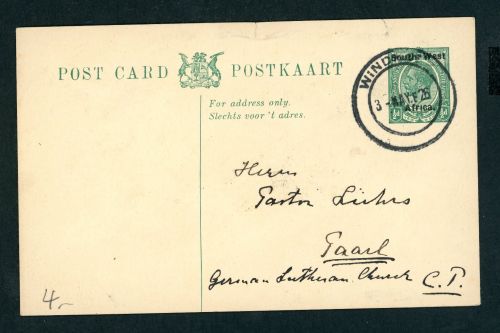 POST CARD POSTKAART
South West
Africa.
½d ½d
WIND
3 MAY 26
For address only.
Slechts voor 't adres.
Herrn
Pastor Lührs
Paarl
German Lutheran Church C.P.
4.-